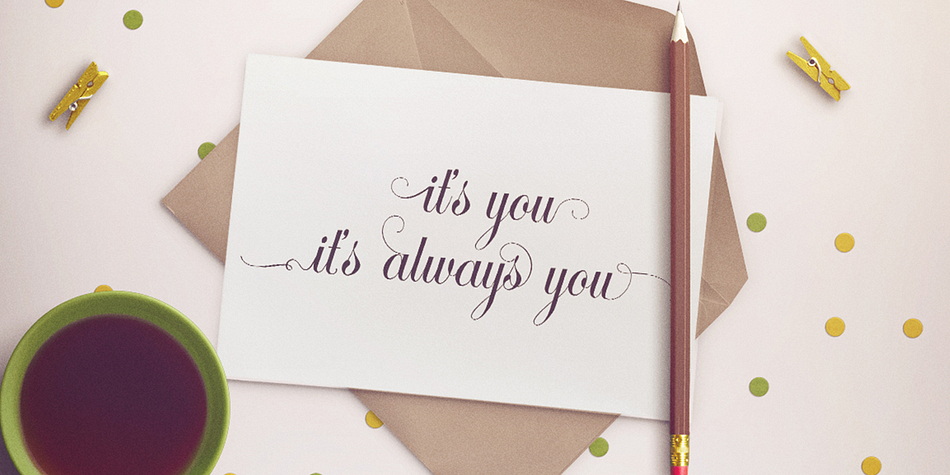 it's you
it's always you